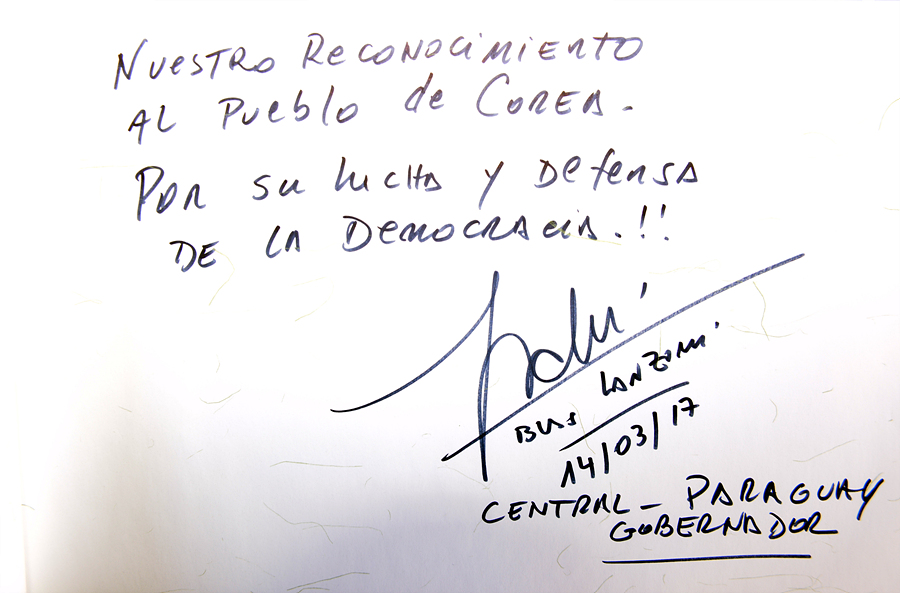 Nuestro Reconocimiento
al Pueblo de Corea.
Por su lucha y Defensa
de la Democracia.!!
Lanzoni
14/03/17
CENTRAL - PARAGUAY
GOBERNADOR